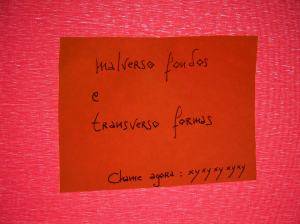 malverso fondos
e
transverso formas
Chame agora : xyxyxyxyxy